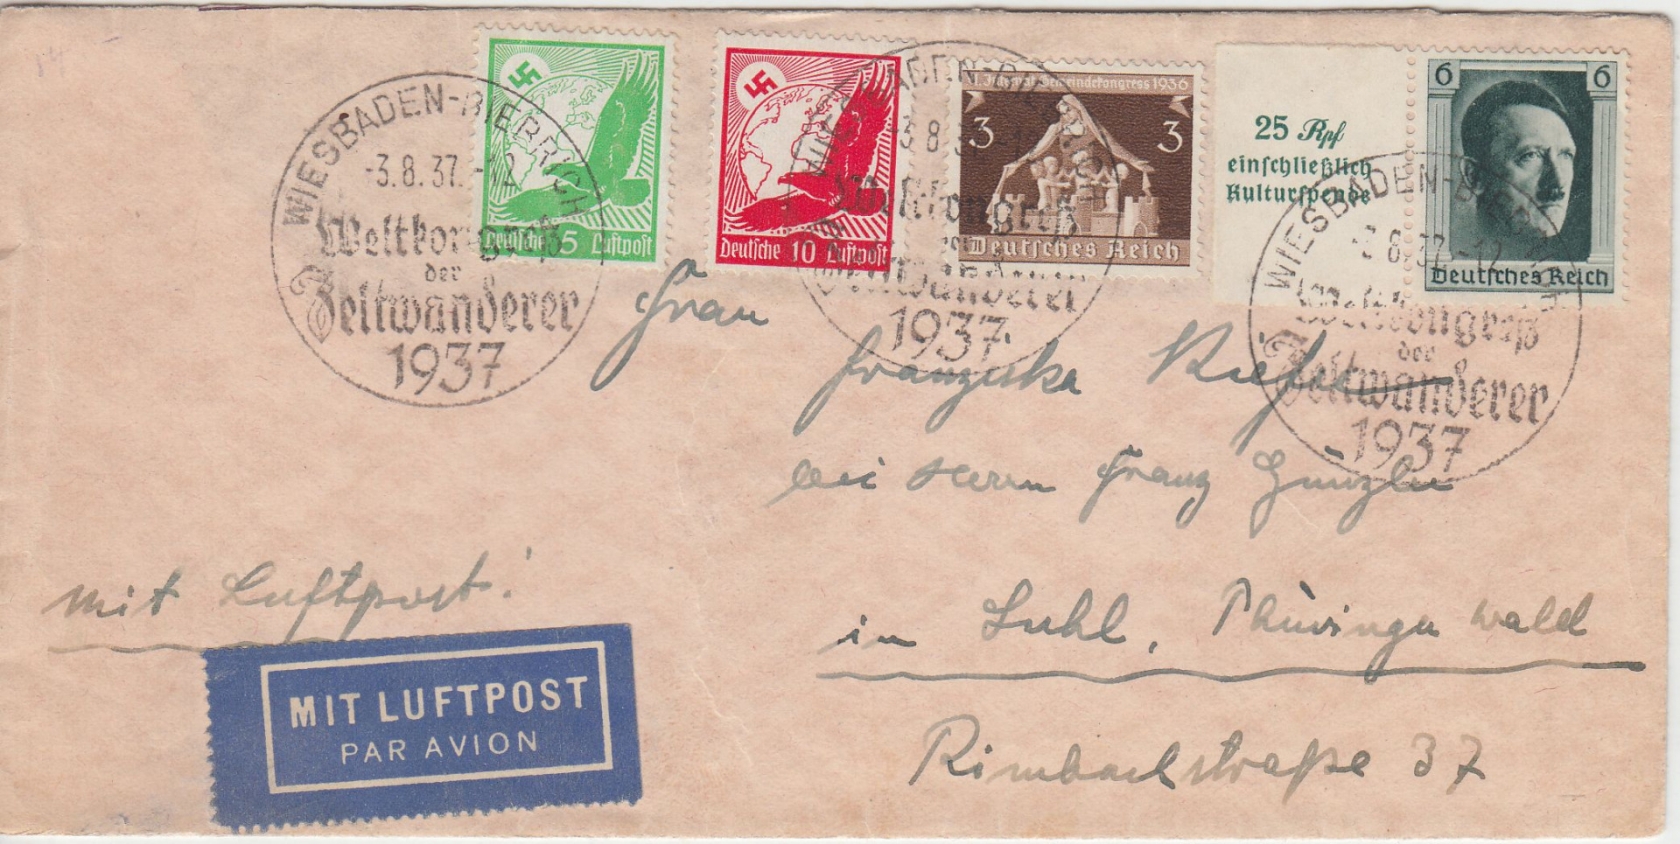 WIESBADEN-BIEBRICH
-3.8.37.-12
Weltkongreß
der
Zeltwanderer
1937
Deutsche 5 Luftpost
Deutsche 10 Luftpost
WIESBADEN-BIEBRICH
-3.8.37.-12
Weltkongreß
der
Zeltwanderer
1937
Internat. Gemeindekongress 1936
3 3
Deutsches Reich
25 Rpf
einschließlich
Kulturspende
6 6
Deutsches Reich
WIESBADEN-BIEBRICH
-3.8.37.-12
Weltkongreß
der
Zeltwanderer
1937
Frau
Franziska
bei Herrn Franz
in Suhl, Thüringerwald
Rimbachstraße 37
mit Luftpost!
MIT LUFTPOST
PAR AVION